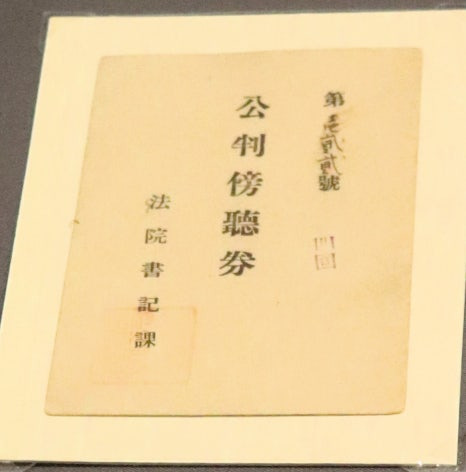 第壹貳貳號
公判傍聽券
法院書記課